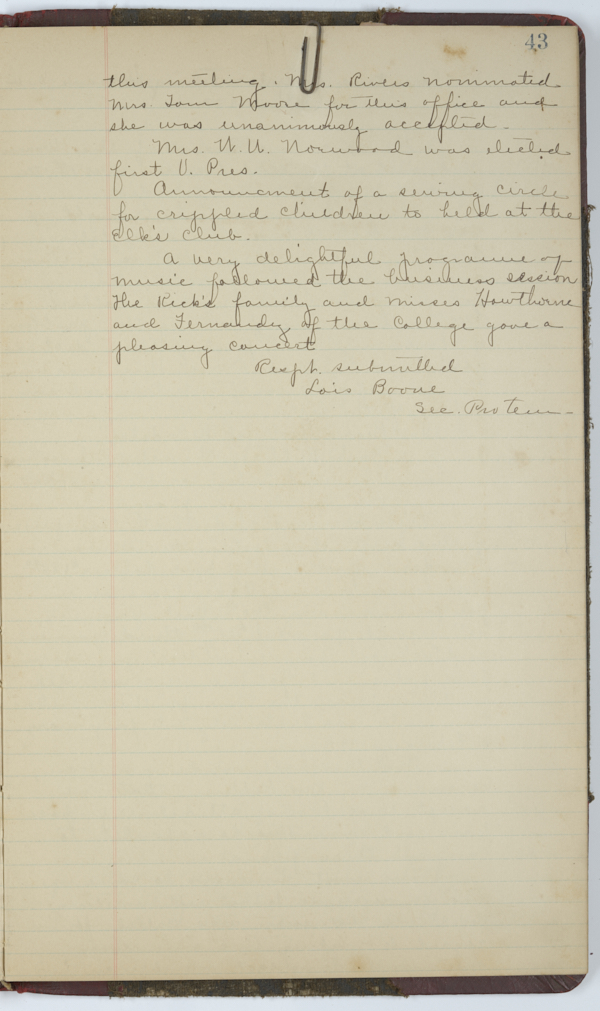 43
this meeting. Mrs. Rivers nominated
Mrs. Tom Moore for this office and
she was unanimously accepted.
Mrs. W. W. Norwood was elected
first V. Pres.
Announcment of a sewing circle
for crippled children to held at the
Elk's Club.
A very delightful programme of
music followed the business session
The Rick's family and Misses Hawthorne
and Fernandez of the College gave a
pleasing concert
Respt. submitted
Lois Boone
Sec. Pro tem-